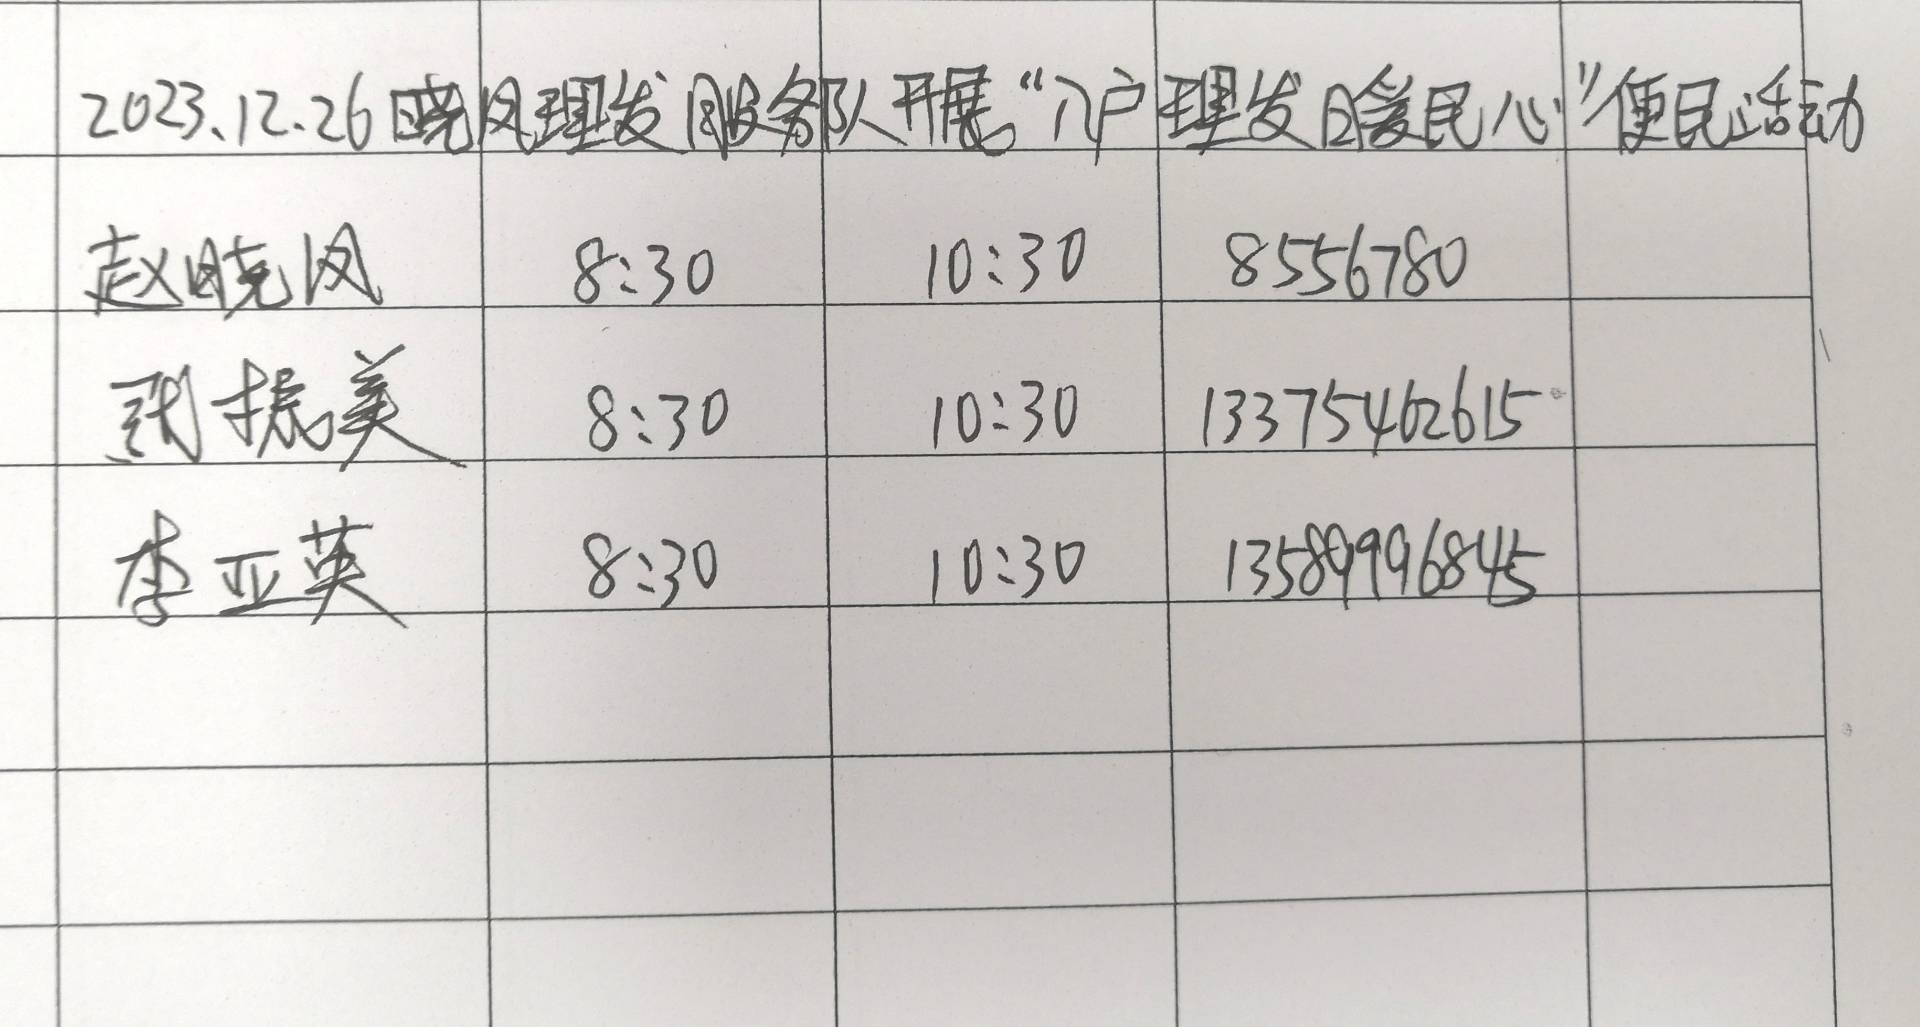 2023.12.26晓凤理发服务队开展“入户理发暖民心”便民活动
赵晓凤 8:30 10:30 8556780
张振美 8:30 10:30 13375462615
李亚英 8:30 10:30 13589996845